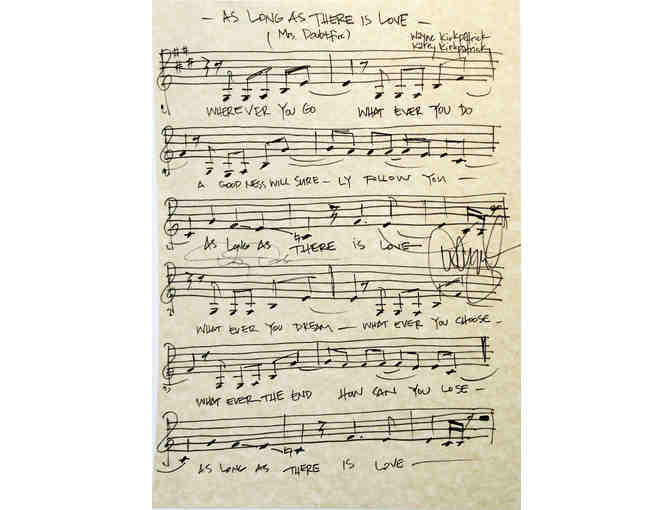 - AS LONG AS THERE IS LOVE -
(Mrs. Doubtfire)
Wayne Kirkpatrick
Karey Kirkpatrick
WHEREVER YOU GO WHAT EVER YOU DO
A GOODNESS WILL SURE - LY FOLLOW YOU -
AS LONG AS THERE IS LOVE
WHAT EVER YOU DREAM - WHAT EVER YOU CHOOSE -
WHAT EVER THE END HOW CAN YOU LOSE -
AS LONG AS THERE IS LOVE -